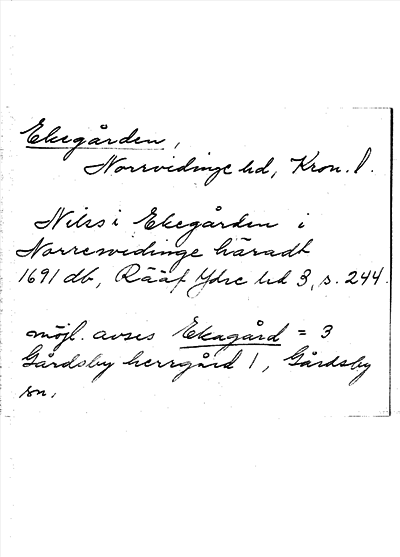 Ekegården,
Norrvidinge hd, Kron. l.
Nilss i Ekegården i
Norresvidinge häradt
1691 db, Rääf Ydre hd 3, s. 244.
möjl. avses Ekagård = 3
Gårdsby herrgård 1, Gårdsby
sn.